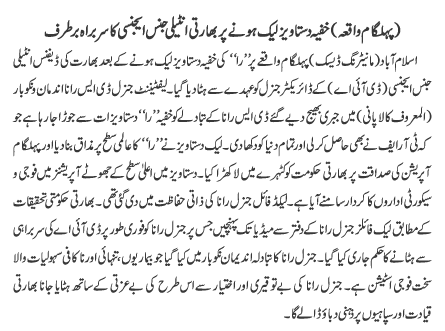 (پہلگام واقعہ) خفیہ دستاویز لیک ہونے پر بھارتی انٹیلی جنس ایجنسی کا سربراہ برطرف
اسلام آباد (مانیٹرنگ ڈیسک) پہلگام واقعے پر ”را“ کی خفیہ دستاویز لیک ہونے کے بعد بھارت کی ڈیفنس انٹیلی
جنس ایجنسی (ڈی آئی اے) کے ڈائریکٹر جنرل کو عہدے سے ہٹا دیا گیا۔ لیفٹیننٹ جنرل ڈی ایس رانا اندمان ونکوبار
(المعروف کالا پانی) میں جبری بھیج دیے گئے ڈی ایس رانا کے تبادلے کو خفیہ ”را“ دستاویزات سے جوڑا جارہا ہے جو
کہ ٹی آر ایف نے بھی حاصل کر لی اور تمام دنیا کو دکھا دی۔ لیک دستاویز نے ”را“ کا عالمی سطح پر مذاق بنا دیا اور پہلگام
آپریشن کی صداقت پر بھارتی حکومت کو کٹہرے میں لا کھڑا کیا۔ دستاویز میں اعلیٰ سطح کے جھوٹے آپریشنز میں فوجی و
سیکورٹی اداروں کا کردار سامنے آیا ہے۔ لیکڈ فائل جنرل رانا کی ذاتی حفاظت میں دی گئی تھی۔ بھارتی حکومتی تحقیقات
کے مطابق لیک فائلز جنرل رانا کے دفتر سے میڈیا تک پہنچیں جس پر جنرل رانا کو فوری طور پر ڈی آئی اے کی سربراہی
سے ہٹانے کا حکم جاری کیا گیا۔ جنرل رانا کا تبادلہ انڈیمان نکوبار میں کیا گیا جو بیماریوں، تنہائی اور ناکافی سہولیات والا
سخت فوجی اسٹیشن ہے۔ جنرل رانا کی بے توقیری اور اختیار سے اس طرح کی بے عزتی کے ساتھ ہٹایا جانا بھارتی
قیادت اور سپاہیوں پر ذہنی دباؤ ڈالے گا۔